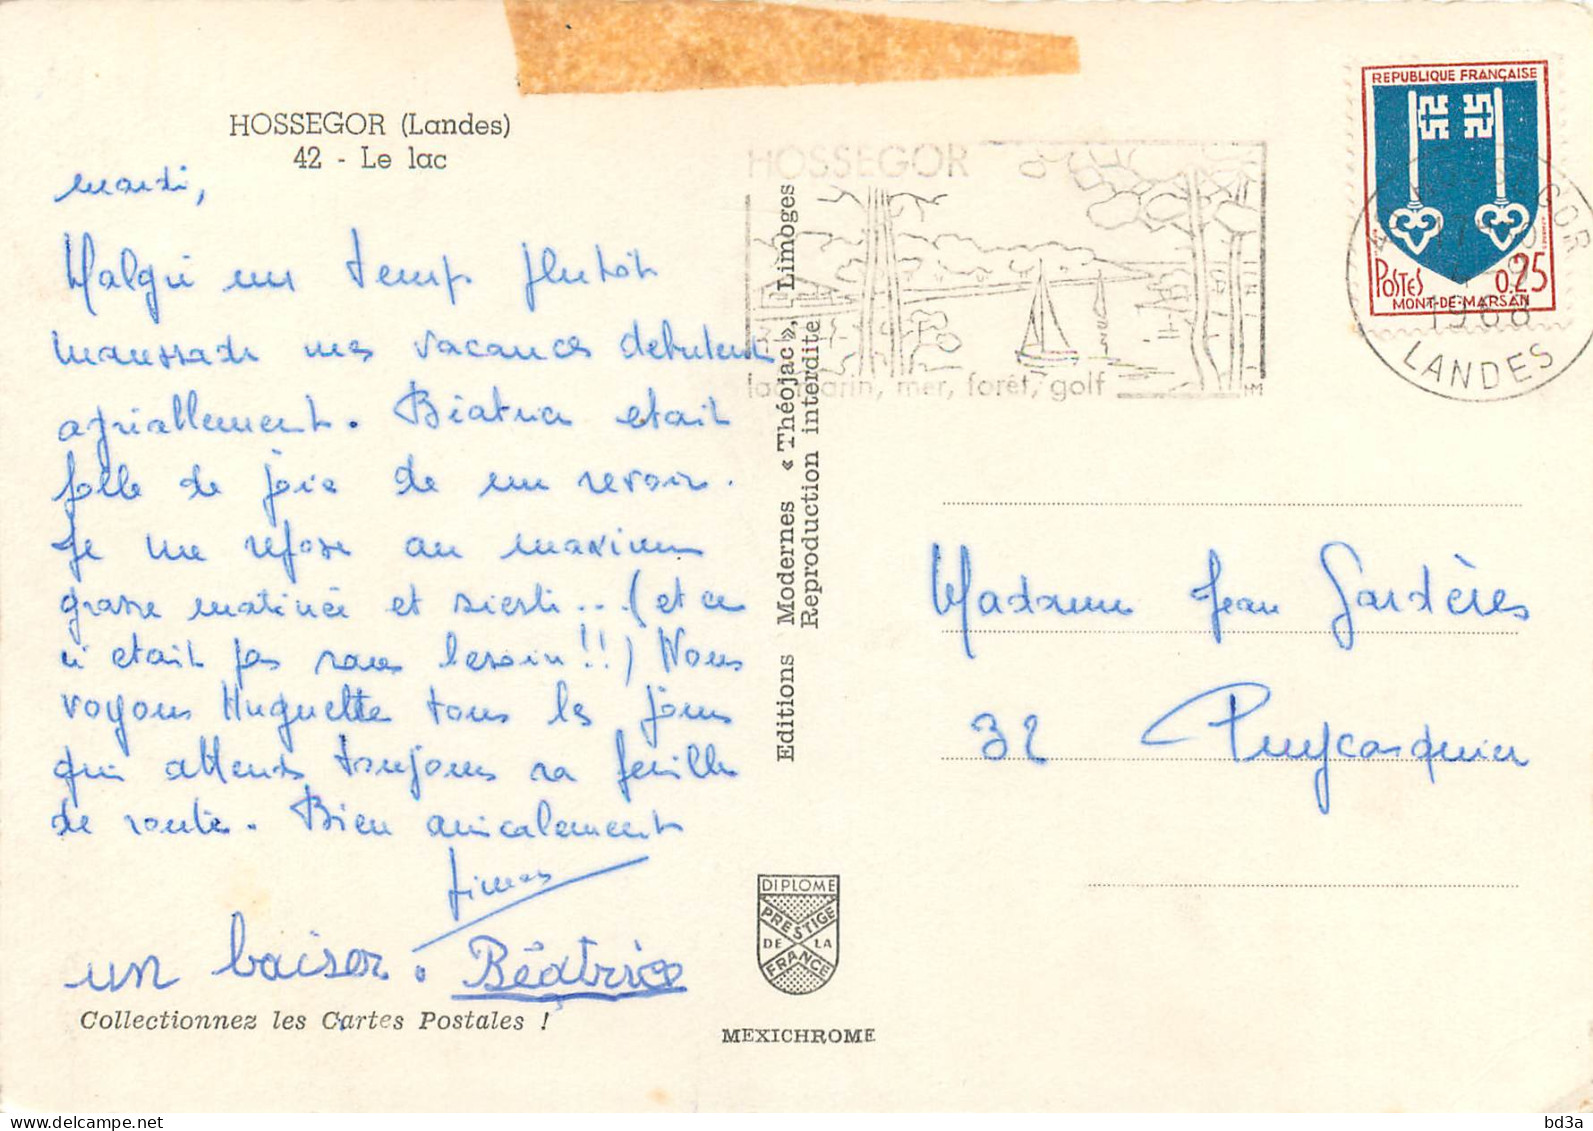 HOSSEGOR (Landes)
42 - Le lac
mardi,
Malgré un temps plutôt
maussade mes vacances debutent
agréablement. Béatrice etait
folle de joie de me revoir.
Je me repose au maximum
grasse matinée et sieste... (et ce
n'etait pas sans besoin!!) Nous
voyons Huguette tous les jours
qui attend toujours sa feuille
de route. Bien amicalement
un baiser. Béatrice
Collectionnez les Cartes Postales !
Editions Modernes « Théojac », Limoges
Reproduction interdite
DIPLOME
PRESTIGE
DE LA
FRANCE
MEXICHROME
HOSSEGOR
lac marin, mer, forêt, golf
REPUBLIQUE FRANÇAISE
POSTES 0,25
MONT-DE-MARSAN
HOSSEGOR
1968
LANDES
Madame Jean Gardères
32 Puycasquier
bd3a